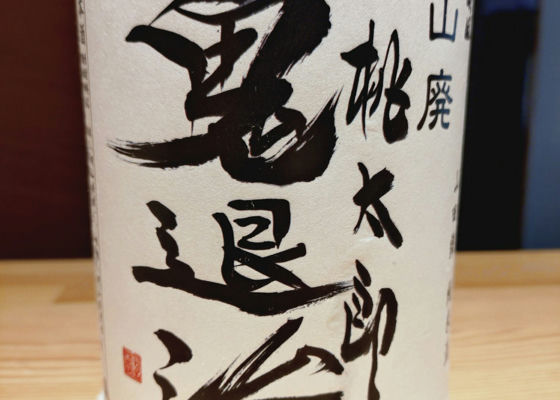 山廃
桃太郎
鬼退治